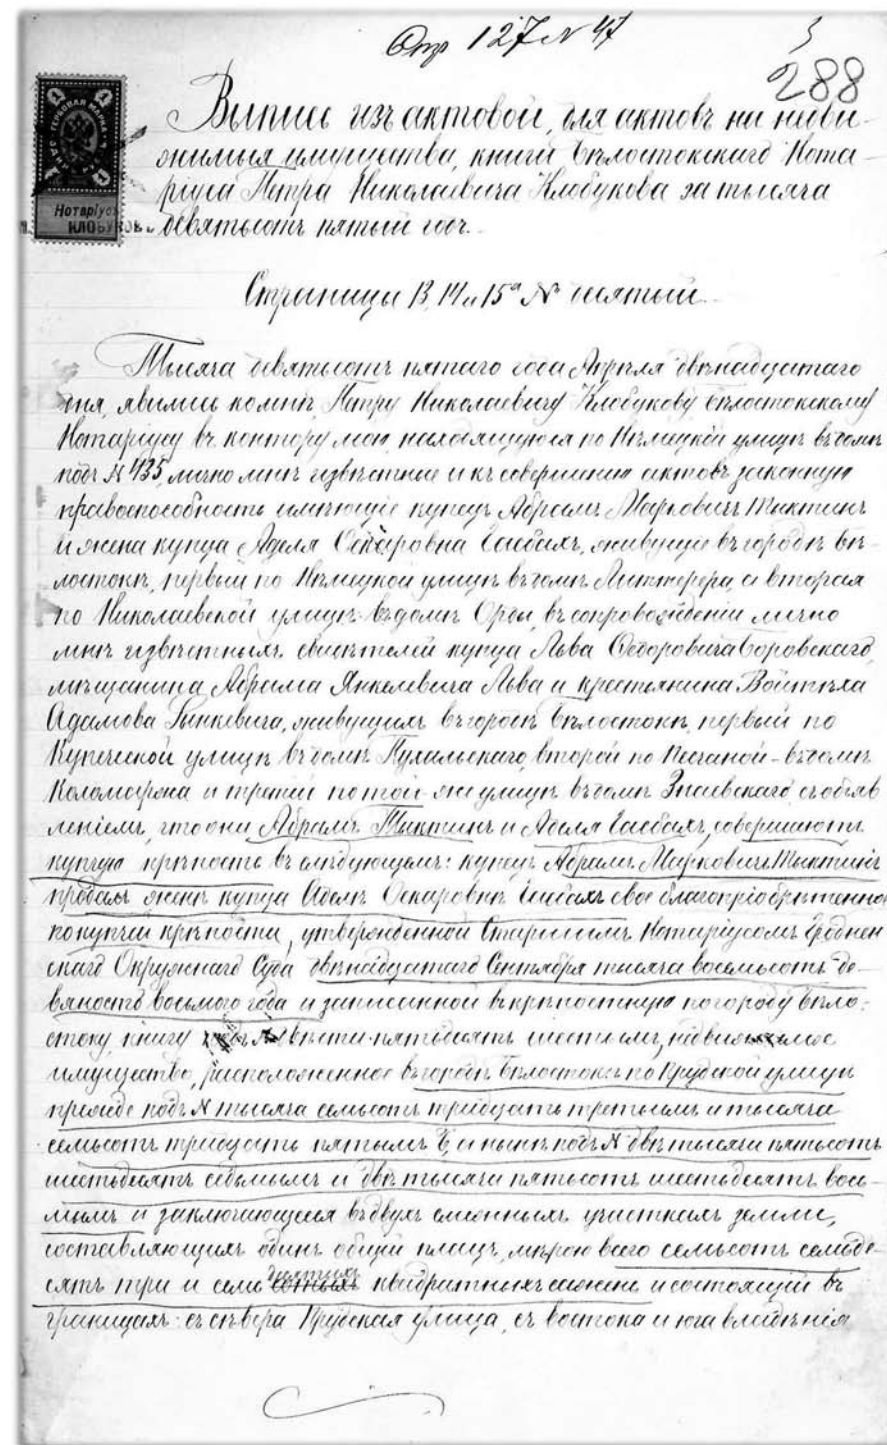 Стр 127 № 47
288
Выпись изъ актовой, для актовъ на недви-
жимыя имущества, книги Бѣлостокскаго Нота-
ріуса Петра Николаевича Клобукова за тысяча
девятьсотъ пятый годъ.
ГЕРБОВАЯ МАРКА
Нотаріусъ
КЛОБУКОВЪ
Страницы 13, 14 и 15ª № десятый
Тысяча девятьсотъ пятаго года Апрѣля двѣнадцатаго
дня, явились ко мнѣ, Петру Николаевичу Клобукову, Бѣлостокскому
Нотаріусу въ контору мою, находящуюся по Нѣмецкой улицѣ въ домѣ
подъ № 435, лично мнѣ извѣстные и къ совершенію актовъ законную
правоспособность имѣющіе купецъ Абрамъ Марковичъ Тыктинъ
и жена купца Аделя Оскаровна Гасбахъ, живущіе въ городѣ Бѣ-
лостокѣ, первый по Нѣмецкой улицѣ въ домѣ и вторая
по Николаевской улицѣ въ домѣ въ сопровожденіи лично
мнѣ извѣстныхъ свидѣтелей купца Льва Ѳедоровича Боровскаго,
мѣщанина Абрама Янкелевича Льва и крестьянина Войтѣха
Адамова живущихъ въ городѣ Бѣлостокѣ, первый по
Купеческой улицѣ въ домѣ второй по Песчаной - въ домѣ
и третій по той же улицѣ въ домѣ съ объяв
леніемъ, что они Абрамъ Тыктинъ и Аделя Гасбахъ, совершаютъ
купчую крѣпость въ слѣдующемъ: купецъ Абрамъ Марковичъ Тыктинъ
продалъ женѣ купца Аделѣ Оскаровнѣ Гасбахъ свое благопріобрѣтенное
по купчей крѣпости, утвержденной Старшимъ Нотаріусомъ Гроднен
скаго Окружнаго Суда двѣнадцатаго Сентября тысяча восемьсотъ де-
вяносто восьмого года и записанной въ крѣпостную по городу Бѣло-
стоку книгу № двѣсти пятьдесятъ шестымъ, недвижимое
имущество, расположенное въ городѣ Бѣлостокѣ по улицѣ
прежде подъ № тысяча семьсотъ тридцать третьимъ и тысяча
семьсотъ тридцать пятымъ и нынѣ подъ № двѣ тысячи пятьсотъ
шестьдесятъ седьмымъ и двѣ тысячи пятьсотъ шестьдесятъ вось-
мымъ и заключающееся въ двухъ смежныхъ участкахъ земли,
составляющихъ одинъ общій плацъ, мѣрою всего семьсотъ семьде-
сятъ три и семь квадратныхъ сажень и состоящій въ
границахъ: съ сѣвера улица, съ востока и юга владѣнія